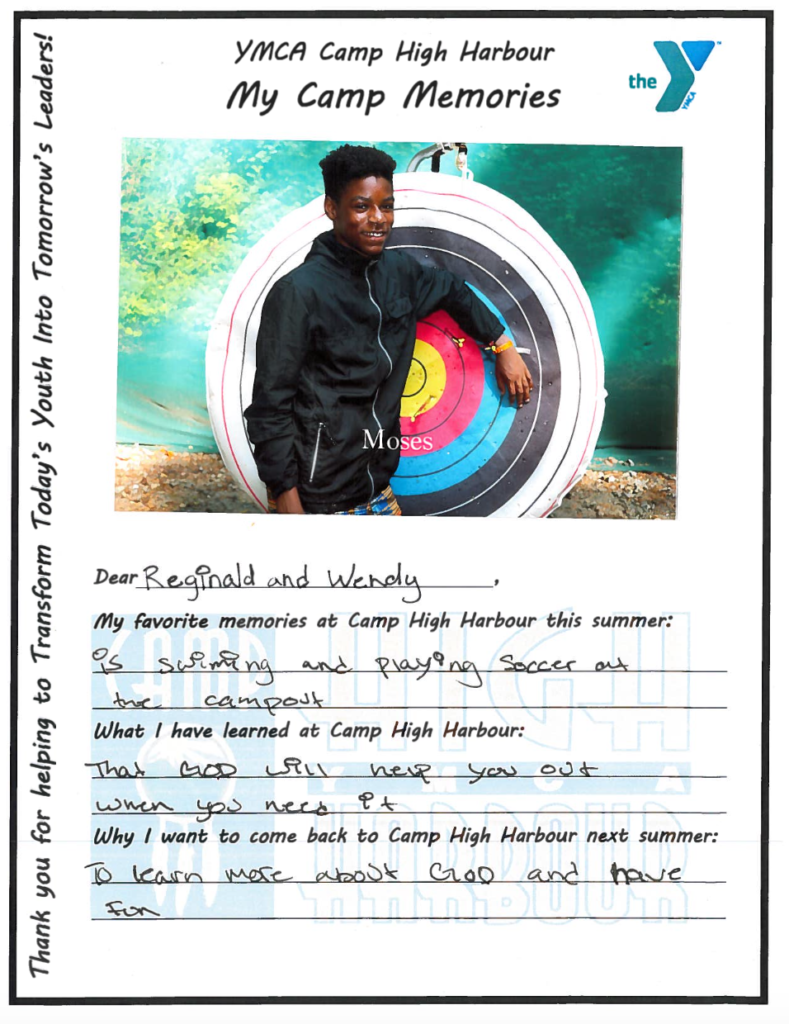 YMCA Camp High Harbour
My Camp Memories
the
YMCA
TM
Thank you for helping to Transform Today's Youth Into Tomorrow's Leaders!
Moses
Dear Reginald and Wendy,
My favorite memories at Camp High Harbour this summer:
is swiming and playing Soccer out
the campout
What I have learned at Camp High Harbour:
That GOD will help you out
when you need it
Why I want to come back to Camp High Harbour next summer:
To learn more about GOD and have
fun
CAMP
HIGH
YMCA
HARBOUR